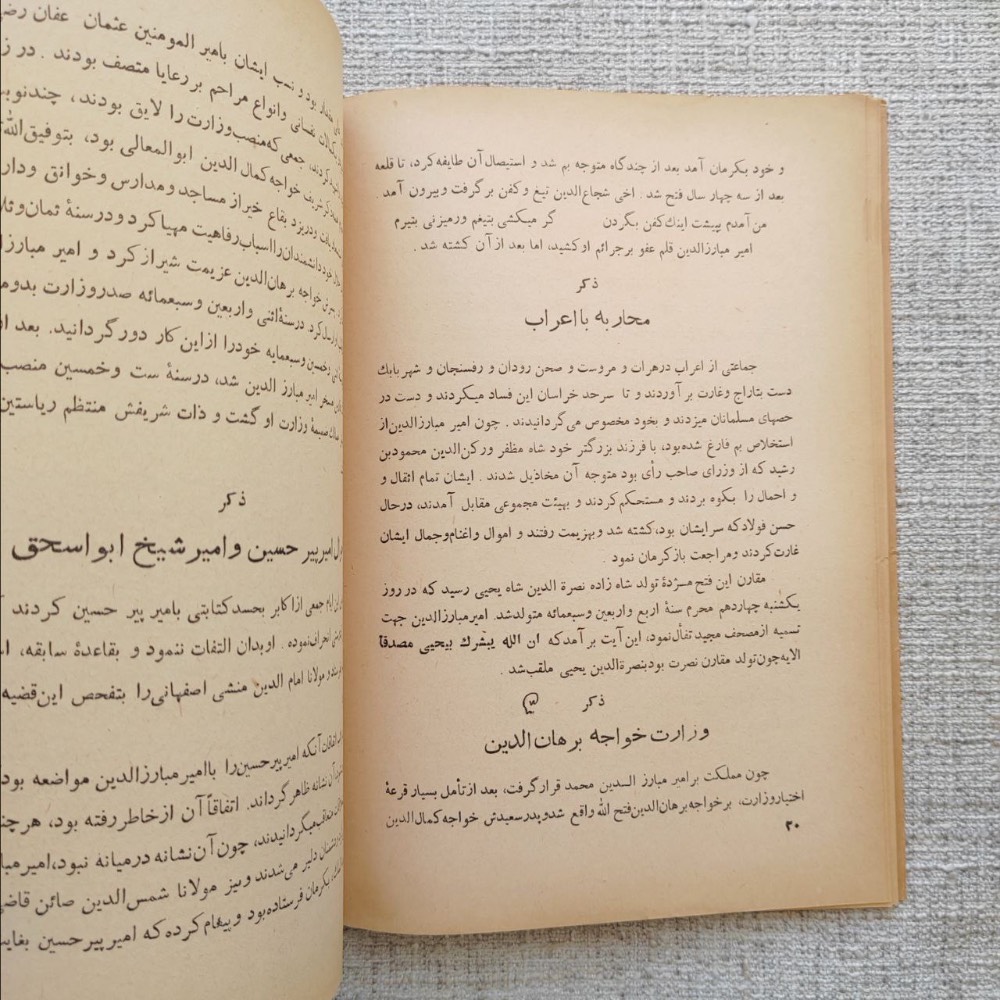 و خود بکرمان آمد بعد از چندگاه متوجه بم شد و استیصال آن طایفه کرد، تا قلعه
بعد از سه چهار سال فتح شد . اخی شجاع‌الدین تیغ و کفن برگرفت وبیرون آمد .
من آمدم پیشت اینك کفن بگردن گر میکشی بتیغم ورمیزنی بتیرم
امیر مبارزالدین قلم عفو برجرائم او کشید، اما بعد از آن کشته شد .
ذکر
محاربه با اعراب
جماعتی از اعراب درهرات و مروست و صحن رودان و رفسنجان و شهر بابك
دست بتاراج وغارت بر آوردند و تا سرحد خراسان این فساد میکردند و دست در
حصهای مسلمانان میزدند و بخود مخصوص می‌گردانیدند . چون امیر مبارزالدین از
استخلاص بم فارغ شده‌بود، با فرزند بزرگتر خود شاه مظفر ورکن‌الدین محمودبن
رشید که از وزرای صاحب رأی بود متوجه آن مخاذیل شدند . ایشان تمام اثقال و
و احمال را بکوه بردند و مستحکم کردند و بهیئت مجموعی مقابل آمدند، درحال
حسن فولادکه سر ایشان بود، کشته شد وبهزیمت رفتند و اموال واغنام وجمال ایشان
غارت کردند ومراجعت بازکرمان نمود .
مقارن این فتح مژدهٔ تولد شاه زاده نصرة الدین شاه یحیی رسید که در روز
یکشنبه چهاردهم محرم سنهٔ اربع واربعین وسبعمائه متولدشد. امیرمبارزالدین جهت
تسمیه ازمصحف مجید تفأل نمود، این آیت بر آمدکه ان الله یبشرك بیحیی مصدقا
الایه چون تولد مقارن نصرت بود بنصرةالدین یحیی ملقب‌شد .
ذکر ۳
وزارت خواجه برهان‌الدین
چون مملکت برامیر مبارز الـدین محمد قرارگرفت، بعد ازتأمل بسیار قرعهٔ
اختیاروزارت، برخواجه برهان‌الدین فتح الله واقع شدوپدرسعیدش خواجه کمال‌الدین
۳۰
بود و نسب ایشان بامیر المومنین عثمان عفان
نفسانی وانواع مراحم بر رعایا متصف بودند . در
جمعی که منصب وزارت را لایق بودند،
شریف خواجه کمال الدین ابوالمعالی بود، بتوفیق‌الله
ودریزد بقاع خیر از مساجد ومدارس وخوانق
دانشمندان را اسباب رفاهیت مهیا کرد و درسنهٔ ثمان
خواجه برهان‌الدین عزیمت شیراز کرد و امیر
درسنهٔ اثنی واربعین وسبعمائه صدروزارت
وسبعمایه خودرا ازاین کار دور گردانید. بعد
امیر مبارز الدین شد، درسنهٔ ست وخمسین منصب
وزارت او گشت و ذات شریفش منتظم ریاستین
ذکر
امیرپیر حسین و امیر شیخ ابواسحق
ایام جمعی ازاکابر بحسدکتابتی بامیر پیر حسین کردند
نموده . اوبدان التفات ننمود و بقاعدهٔ سابقه،
و مولانا امام الدین منشی اصفهانی را بتفحص این قضیه
آنکه امیرپیرحسین‌را باامیرمبارزالدین مواضعه
آن نشانه ظاهر گرداند. اتفاقاً آن ازخاطر رفته بود،
میگردانیدند، چون آن نشانه درمیانه نبود،
دلیر می‌شدند ونیز مولانا شمس‌الدین صائن
بکرمان فرستاده بود و پیغام کرده که امیر پیر حسین